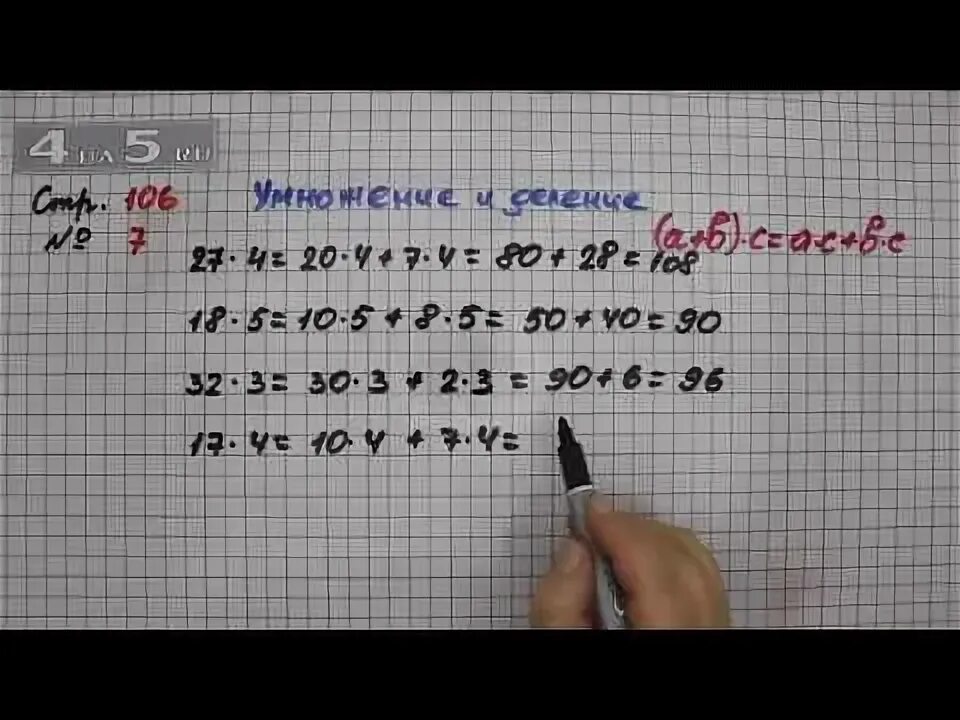 4 на 5 RU
Стр. 106 Умножение и деление
№ 7 (a+b)·c=a·c+b·c
27·4=20·4+7·4=80+28=108
18·5=10·5+8·5=50+40=90
32·3=30·3+2·3=90+6=96
17·4=10·4+7·4=